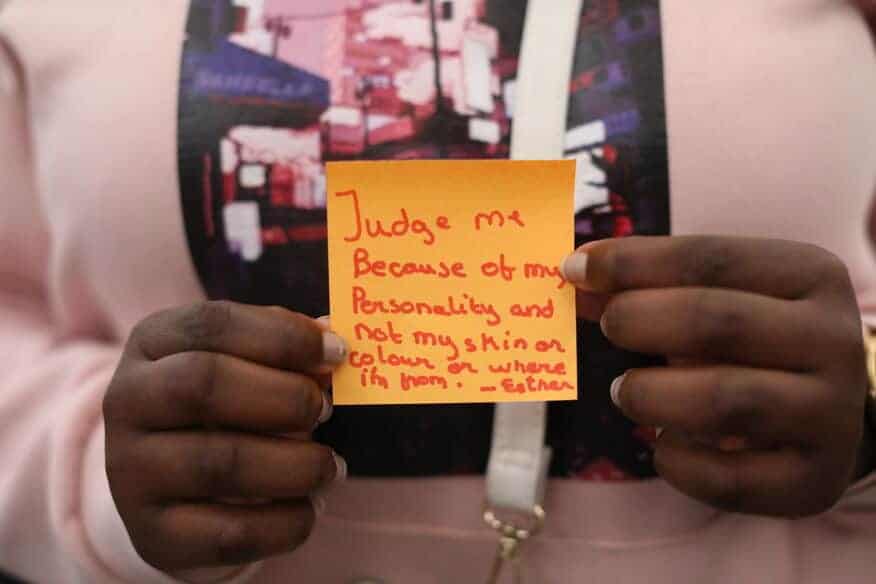 Judge me
Because of my
Personality and
not my skin or
colour or where
im from. - Esther